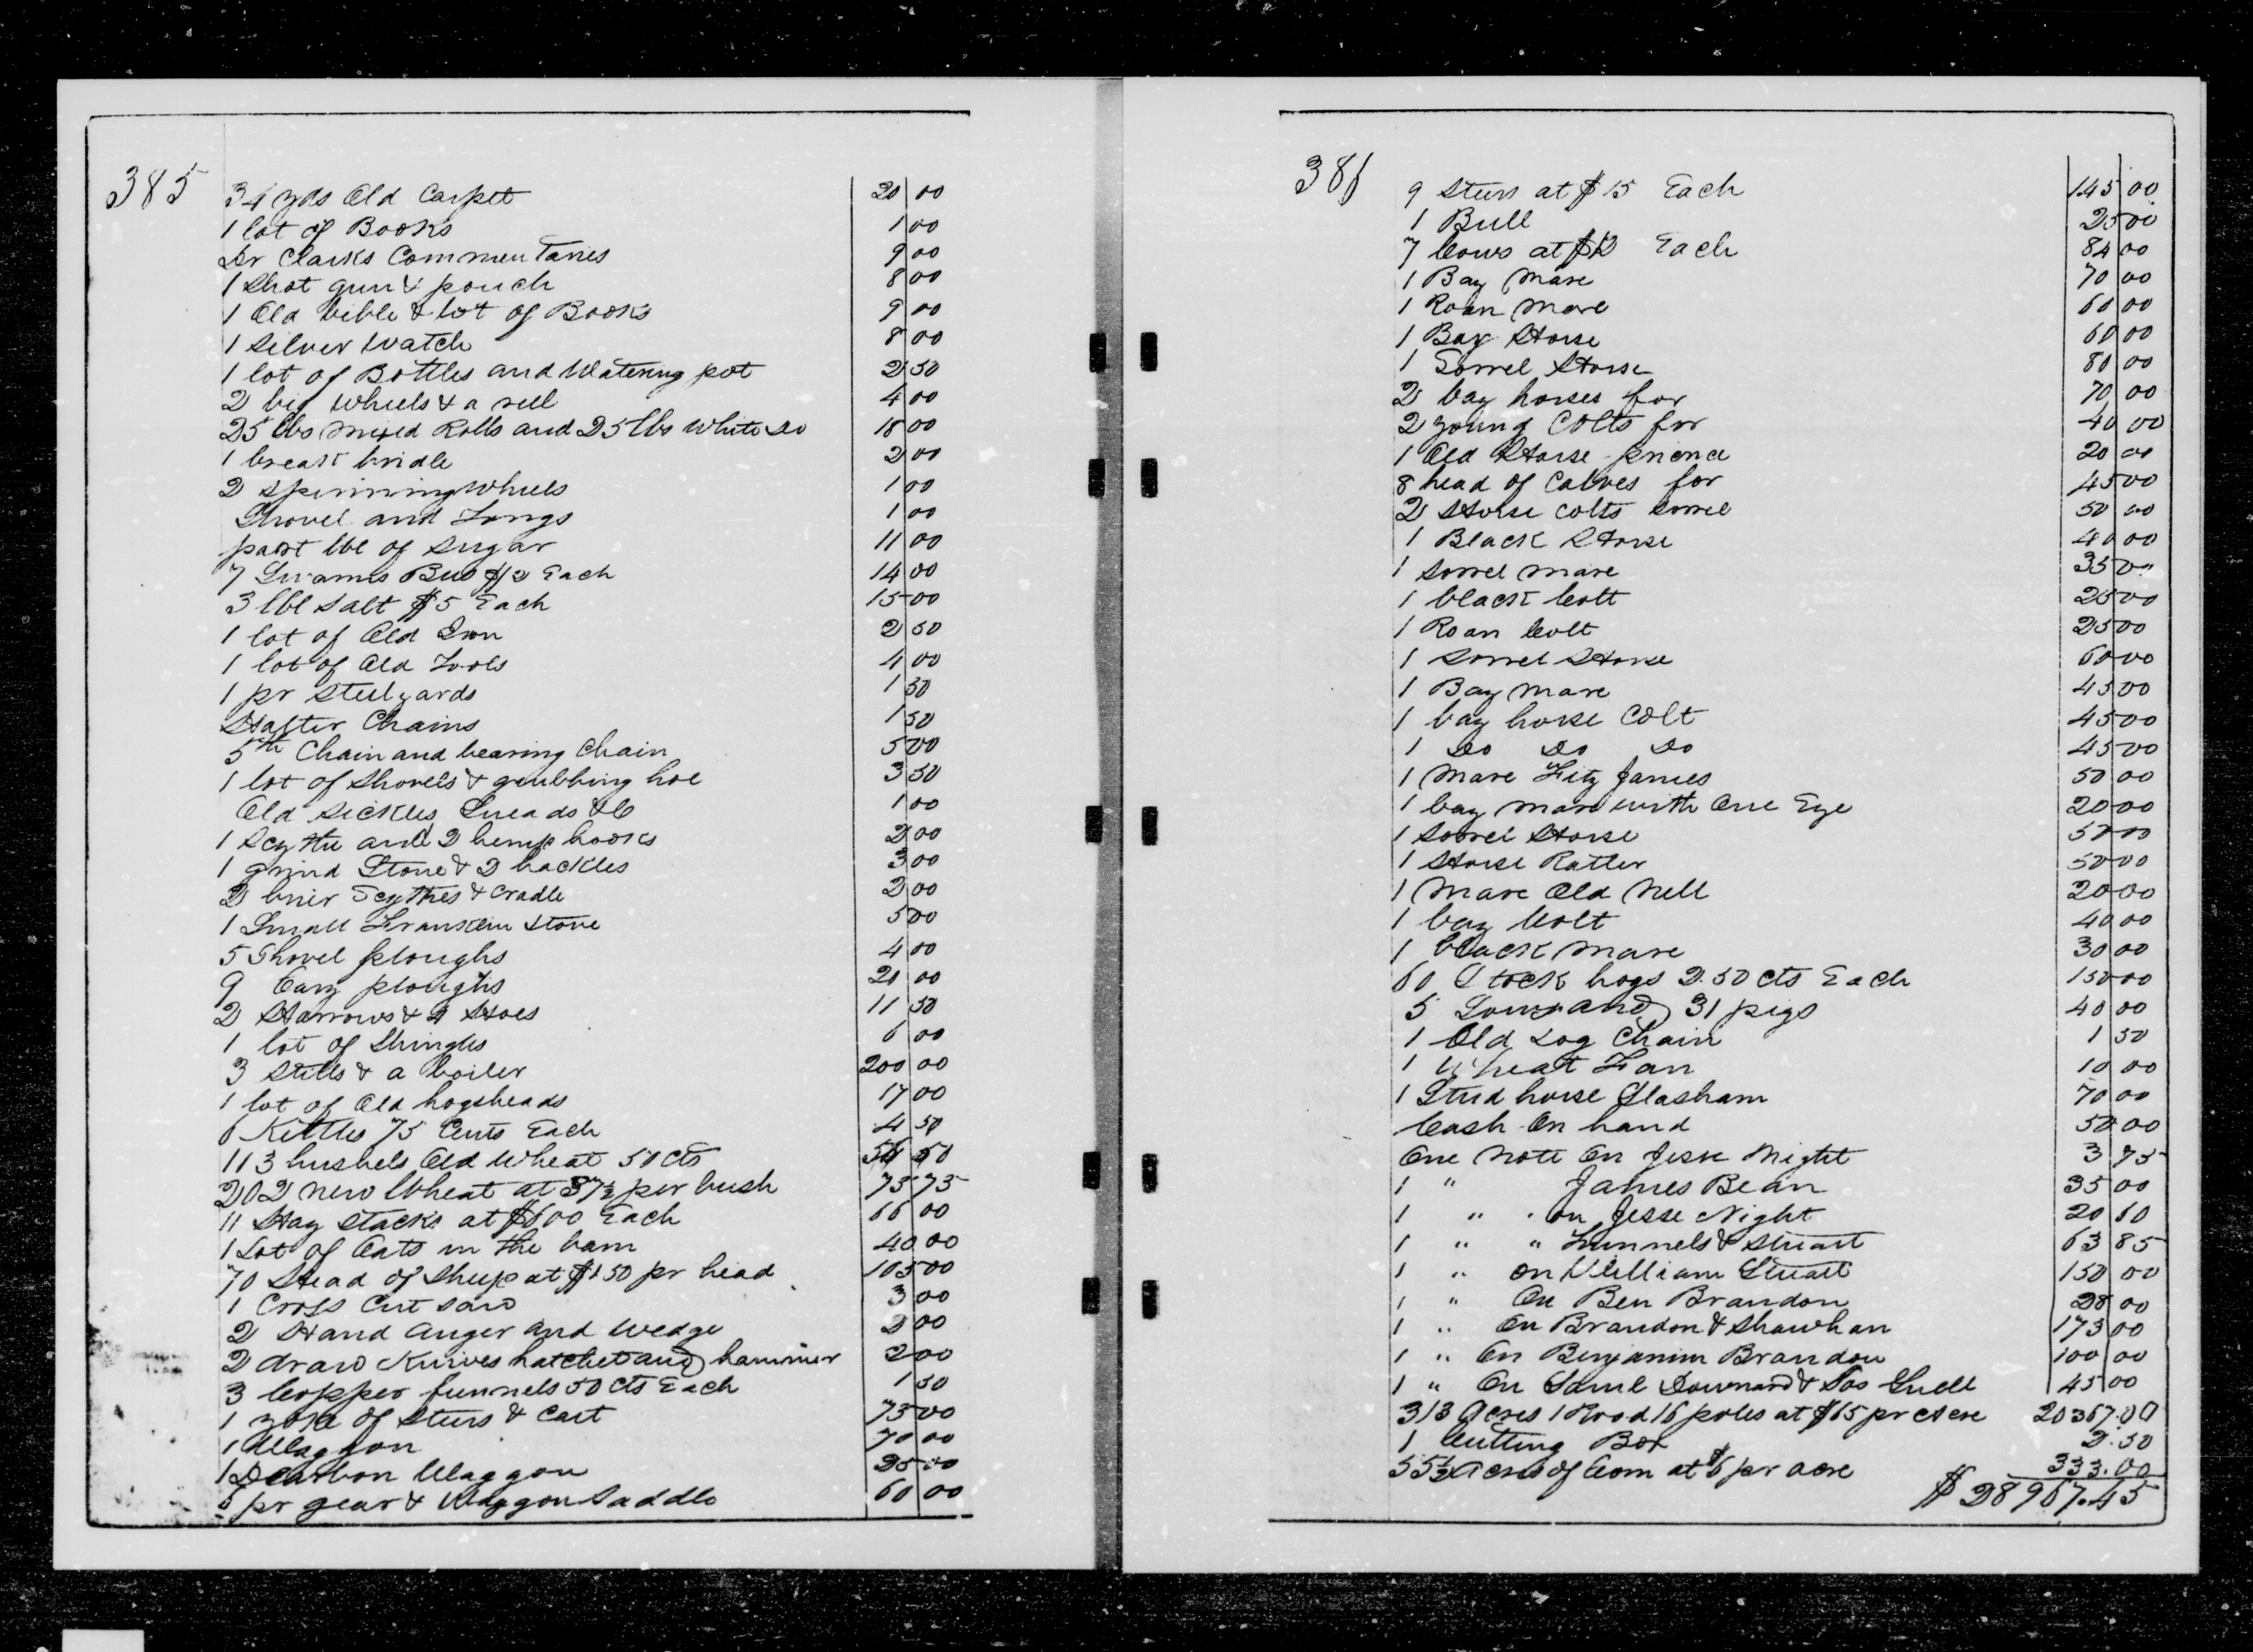 385
34 yds Old Carpet 20 00
1 lot of Books 1 00
Dr Clarks Commentaries 9 00
1 Shot gun & pouch 8 00
1 Old bible & lot of Books 9 00
1 Silver Watch 8 00
1 lot of Bottles and Watering pot 2 50
2 big Wheels & a reel 4 00
25 lbs mixed Rolls and 25 lbs White Do 18 00
1 breast bridle 2 00
2 Spinning Wheels 1 00
Shovel and Tongs 1 00
part bbl of Sugar 11 00
7 Swarms Bees $2 Each 14 00
3 bbl Salt $5 Each 15 00
1 lot of Old Iron 2 50
1 lot of Old Tools 4 00
1 pr Steelyards 1 50
Halter Chains 1 50
5th Chain and bearing Chain 5 00
1 lot of Shovels & grubbing hoe 3 50
Old Sickles Sneads &C 1 00
1 Scythe and 2 hemp hooks 2 00
1 grind Stone & 2 hackles 3 00
2 brier Scythes & Cradle 2 00
1 Small Franklin Stove 5 00
5 Shovel ploughs 4 00
9 Cary ploughs 20 00
2 Harrows & 4 Hoes 11 50
1 lot of Shingles 6 00
3 Stills & a boiler 200 00
1 lot of Old hogsheads 17 00
6 Kettles 75 Cents Each 4 50
113 bushels Old Wheat 50 cts 56 50
202 new Wheat at 37½ per bush 73 75
11 Hay Stacks at $6 00 Each 66 00
1 Lot of Oats in the barn 40 00
70 Head of Sheep at $1 50 pr head 105 00
1 Cross Cut Saw 3 00
2 Hand Auger and Wedge 2 00
2 draw Knives hatchet and hammer 2 00
3 Copper funnels 50 cts Each 1 50
1 yoke of Steers & Cart 75 00
1 Waggon 70 00
1 Dearbon Waggon 35 00
6 pr gear & Waggon Saddle 60 00
386
9 Steers at $15 Each 145 00
1 Bull 25 00
7 Cows at $12 Each 84 00
1 Bay Mare 70 00
1 Roan Mare 60 00
1 Bay Horse 60 00
1 Sorrel Horse 80 00
2 bay horses for 70 00
2 young Colts for 40 00
1 Old Horse 20 00
8 head of Calves for 45 00
2 Horse Colts Sorrel 50 00
1 Black Horse 40 00
1 Sorrel mare 35 00
1 black Colt 25 00
1 Roan Colt 25 00
1 Sorrel Horse 60 00
1 Bay Mare 45 00
1 bay horse Colt 45 00
1 Do Do Do 45 00
1 Mare Fitz James 50 00
1 bay mare with One Eye 20 00
1 Sorrel Horse 50 00
1 Horse Ratler 50 00
1 Mare Old Nell 20 00
1 bay Colt 40 00
1 black Mare 30 00
60 Stock hogs 2.50 cts Each 150 00
5 Sows and 31 pigs 40 00
1 Old Log Chain 1 50
1 Wheat Fan 10 00
1 Stud horse Slasham 70 00
Cash On hand 50 00
One Note On Jesse Night 3 75
1 " James Bean 35 00
1 " on Jesse Night 20 60
1 " " Hunnels & Stuart 63 85
1 " on William Stuart 150 00
1 " On Ben Brandon 28 00
1 " On Brandon & Shawhan 173 00
1 " On Benjamin Brandon 100 00
1 " On Saml Downard & Jos Snell 45 00
313 Acres 1 Rood 16 poles at $65 pr Acre 20367.00
1 Cutting Box 2.50
55½ Acres of Corn at $6 pr acre 333.00
$28967.45